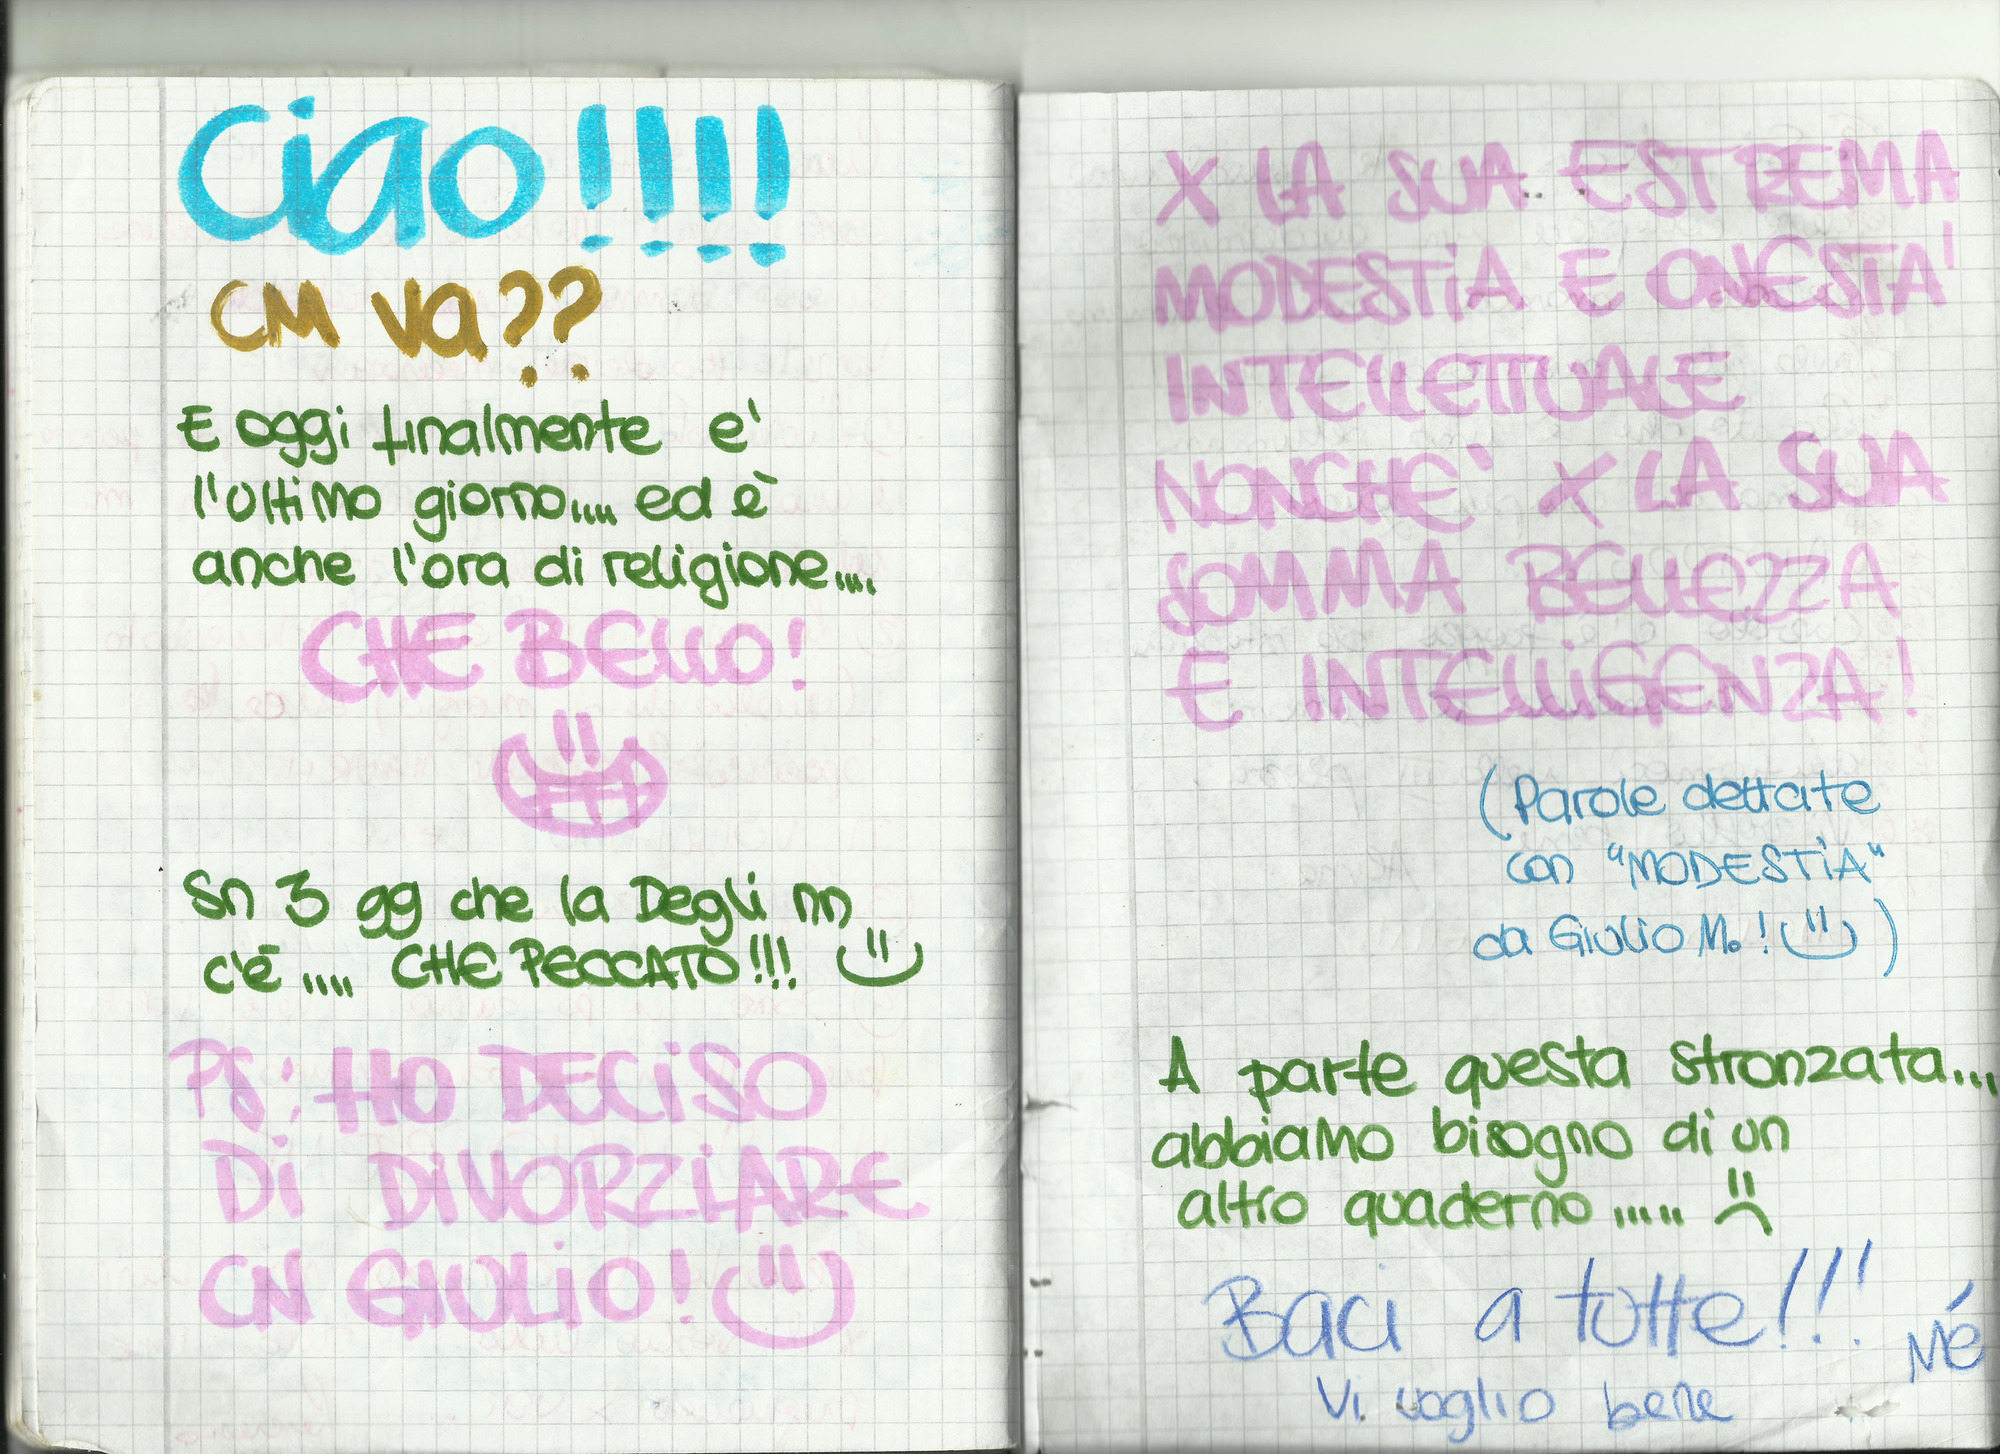 Ciao!!!!
CM VA??
E oggi finalmente e'
l'ultimo giorno.... ed è
anche l'ora di religione....
CHE BELLO!
Sn 3 gg che la Degli nn
c'è .... CHE PECCATO!!!
PS: HO DECISO
Di DiVORZIARE
CN GIULIO!
X LA SUA ESTREMA
MODESTiA E ONESTA'
INTELLETTUALE
NONCHE' X LA SUA
SOMMA BELLEZZA
E INTELLiGENZA!
(Parole dettate
con "MODESTiA"
da GiULiO M.! )
A parte questa stronzata...
abbiamo bisogno di un
altro quaderno.....
Baci a tutte!!!
Mé
Vi voglio bene